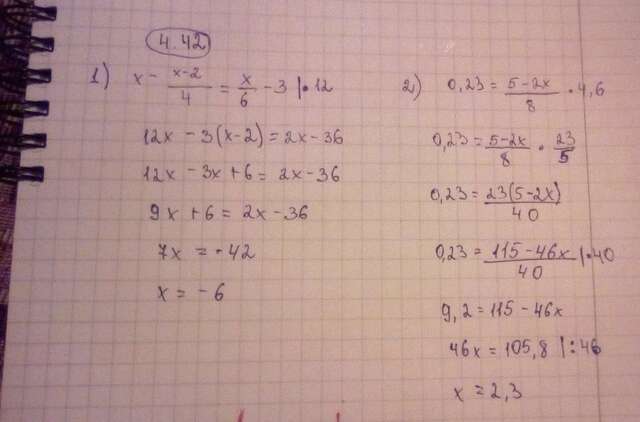 4.42
1) x - (x-2)/4 = x/6 - 3 |·12
12x - 3(x-2) = 2x - 36
12x - 3x + 6 = 2x - 36
9x + 6 = 2x - 36
7x = -42
x = -6
2) 0,23 = (5-2x)/8 · 4,6
0,23 = (5-2x)/8 · 23/5
0,23 = 23(5-2x)/40
0,23 = (115-46x)/40 |·40
9,2 = 115 - 46x
46x = 105,8 |:46
x = 2,3